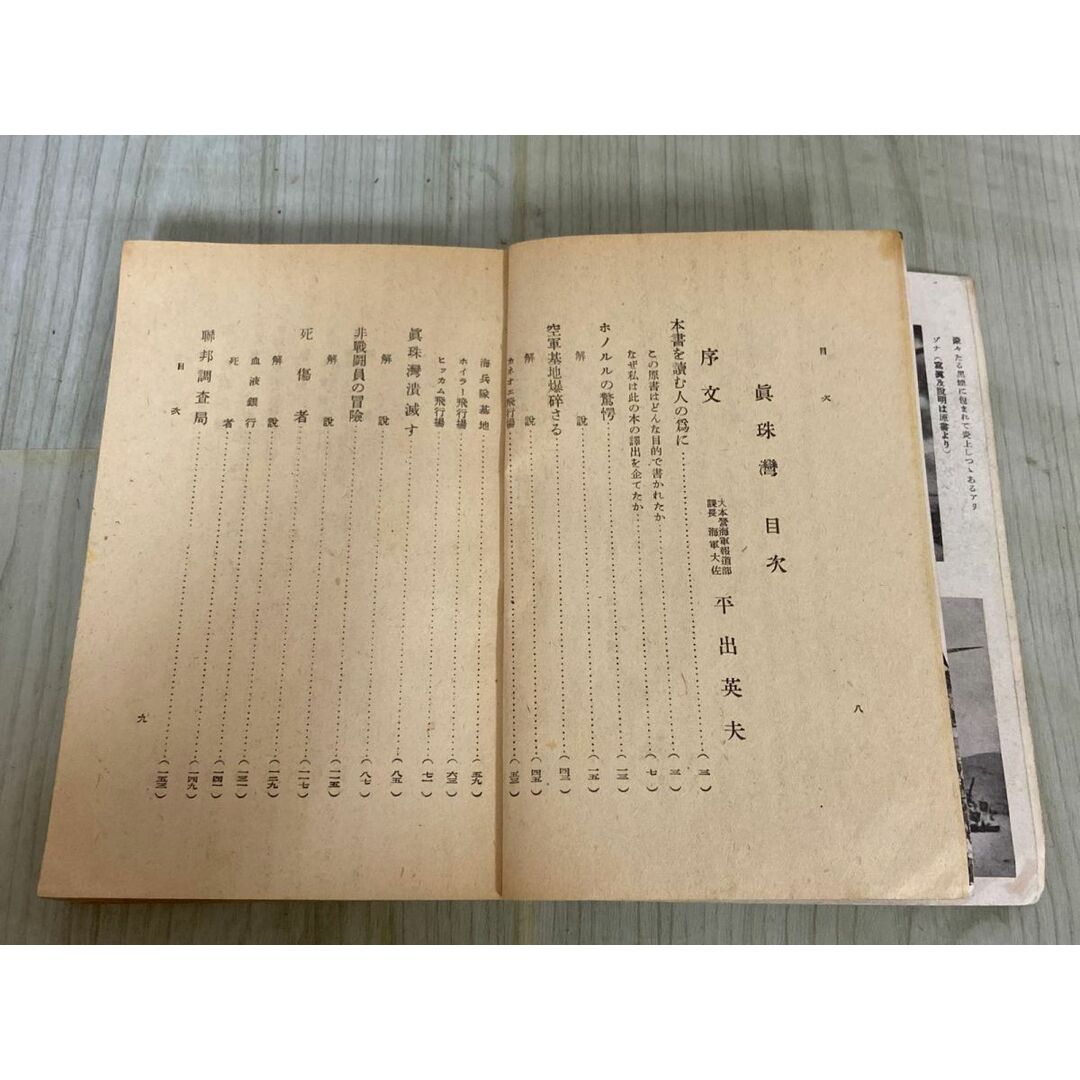 濛々たる黒煙に包まれて炎上しつゝあるアリ
ゾナ（寫眞及說明は原書より）
目次
八
眞珠灣 目次
序文
大本營海軍報道部
課長 海軍大佐
平出英夫
（三）
本書を讀む人の爲に（三）
この原書はどんな目的で書かれたか（七）
なぜ私は此の本の譯出を企てたか（一三）
ホノルルの驚愕（一五）
解說（四三）
空軍基地爆碎さる（四五）
解說（五三）
カネオエ飛行場（五九）
海兵隊基地（六三）
ホイラー飛行場（七一）
ヒッカム飛行場（八五）
眞珠灣潰滅す（八七）
解說（一一五）
非戰鬪員の冒險（一一七）
解說（一二九）
死傷者（一三一）
解說（一四一）
血液銀行（一四九）
死者（一五三）
聯邦調査局
目次
九